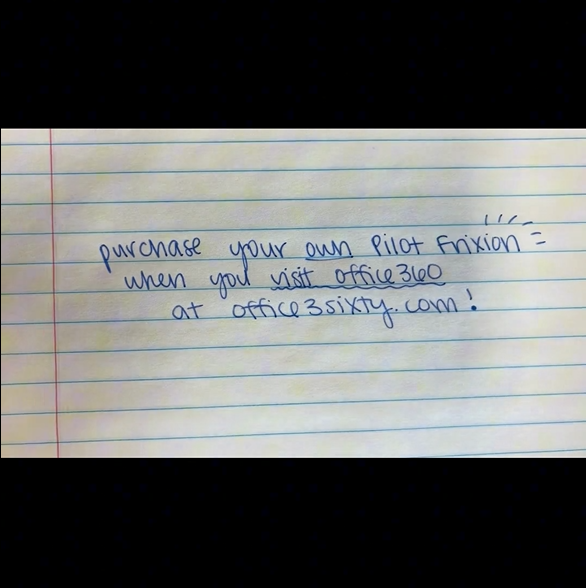 purchase your own Pilot Frixion
when you visit office360
at office3sixty.com!